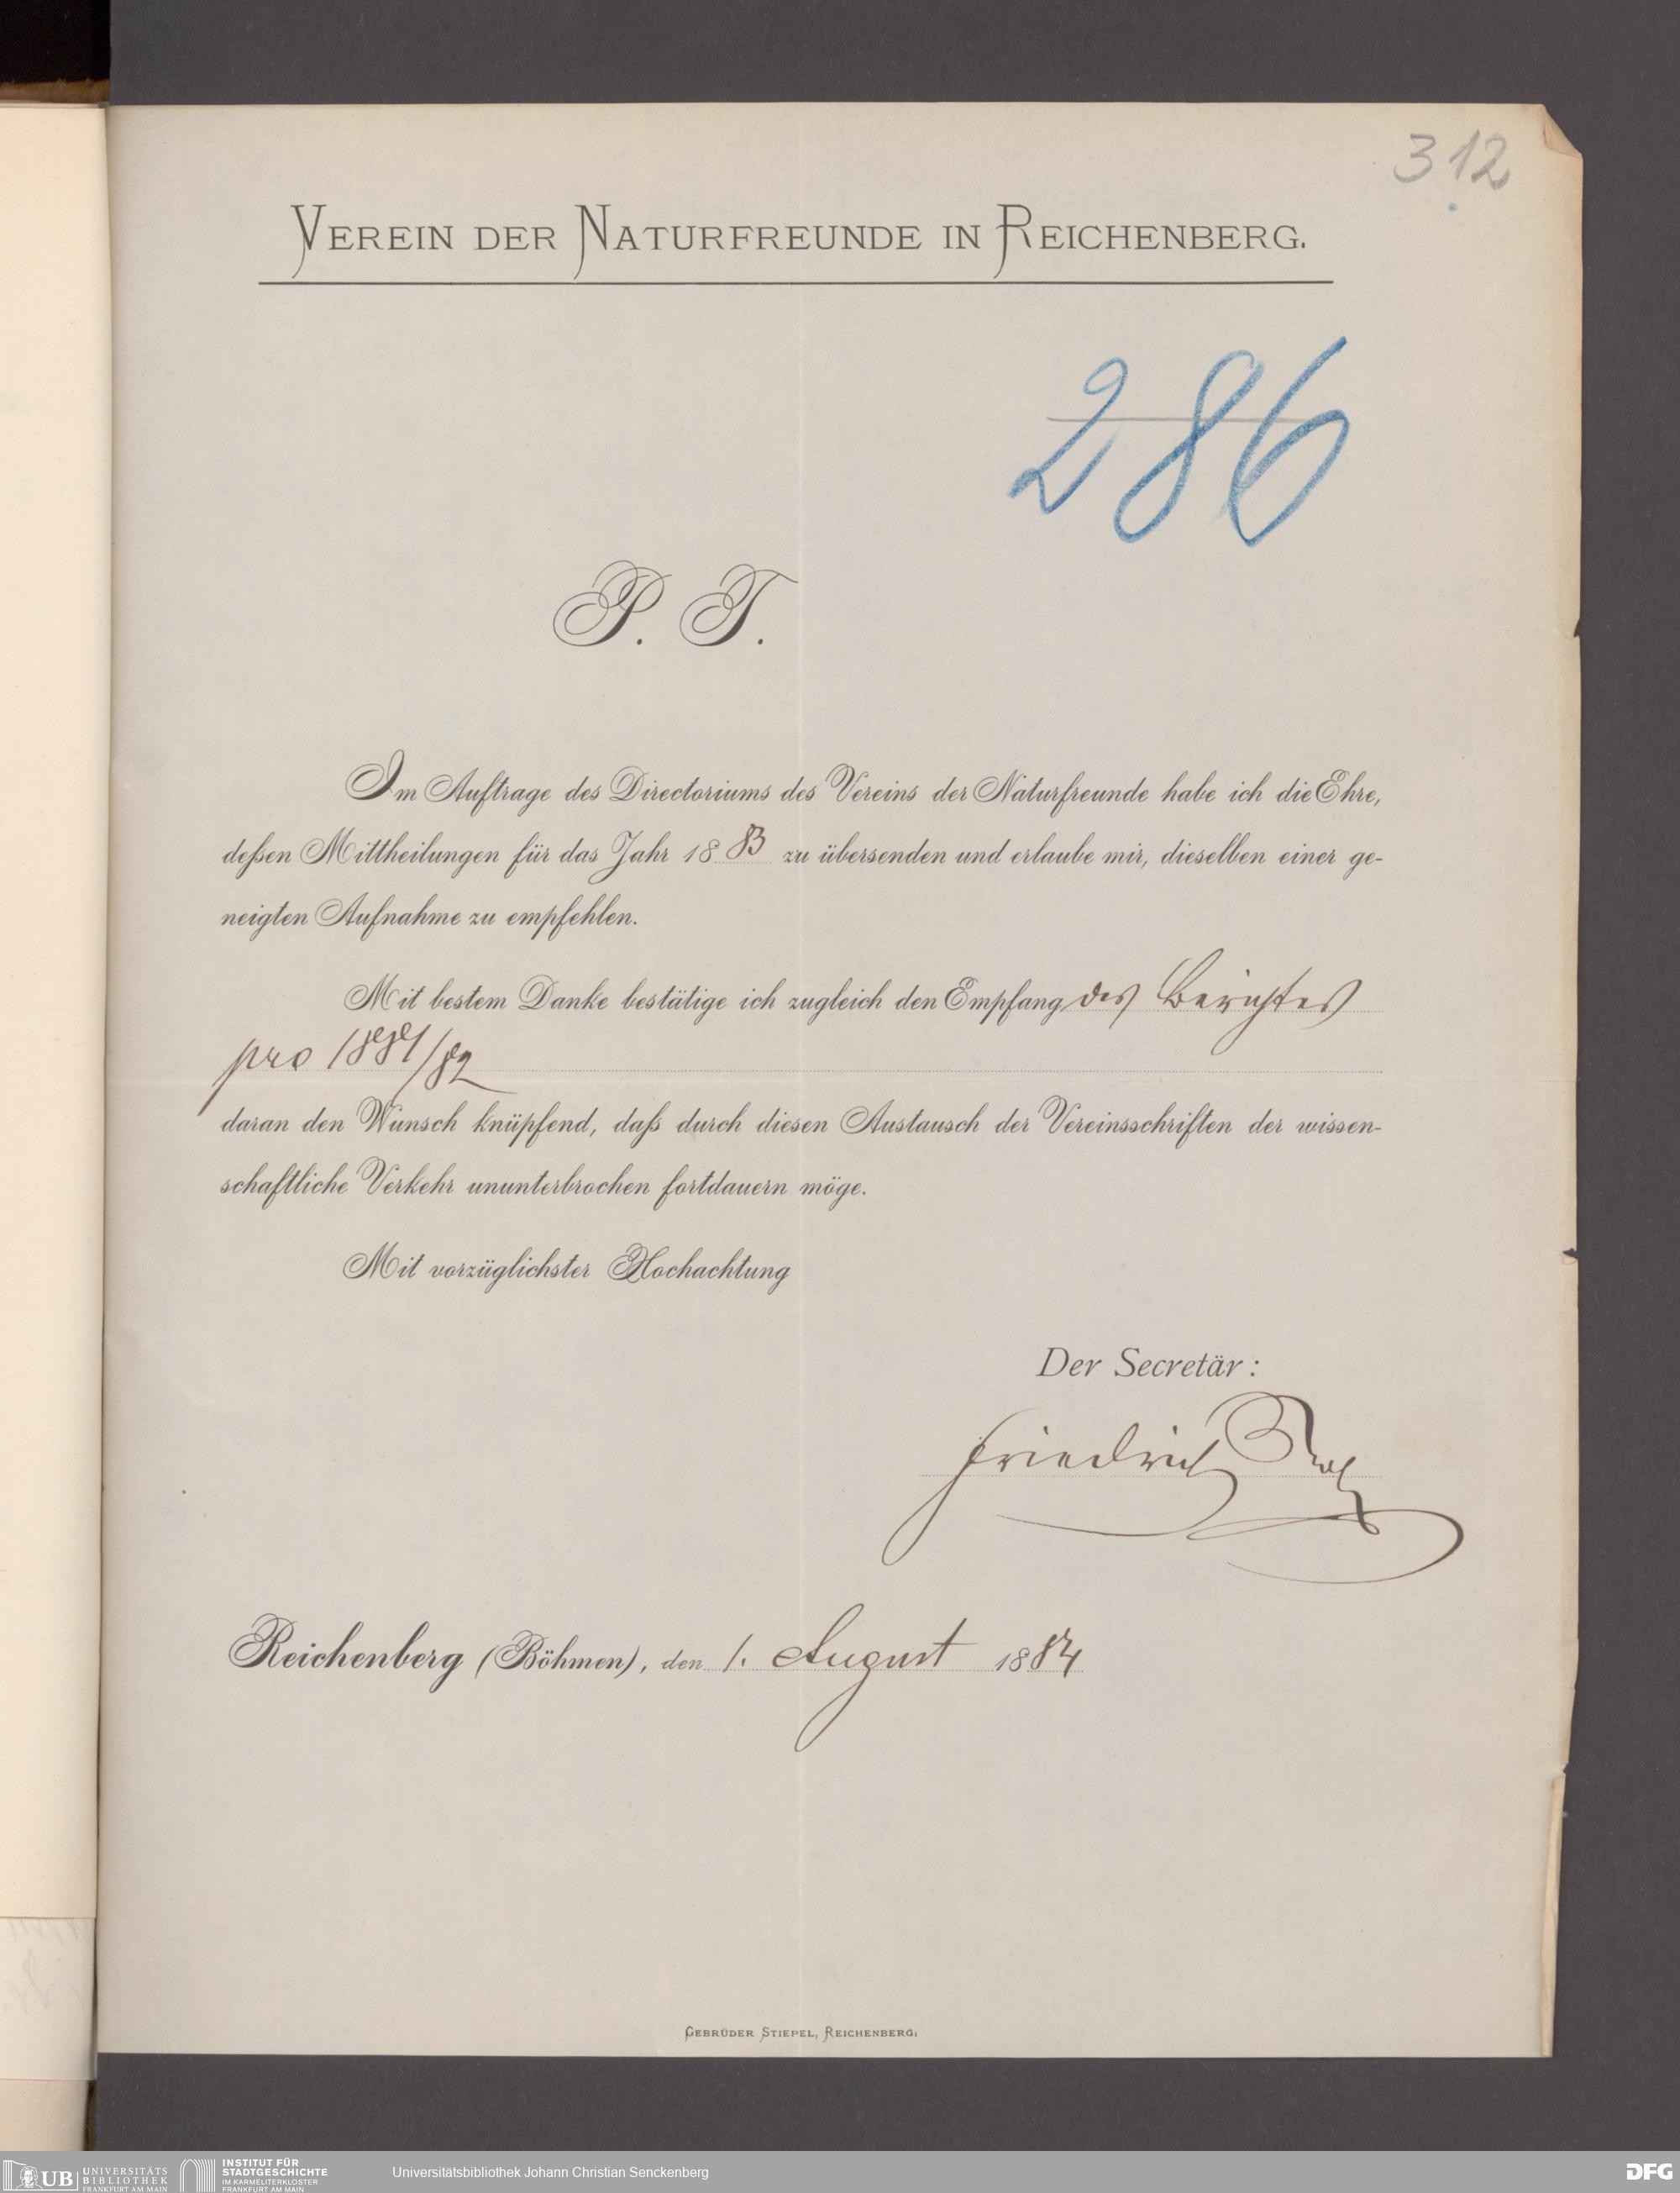 312
VEREIN DER NATURFREUNDE IN REICHENBERG.
286
P. T.
Im Auftrage des Directoriums des Vereins der Naturfreunde habe ich die Ehre,
deßen Mittheilungen für das Jahr 1883 zu übersenden und erlaube mir, dieselben einer ge-
neigten Aufnahme zu empfehlen.
Mit bestem Danke bestätige ich zugleich den Empfang des Berichtes
pro 1881/82
daran den Wunsch knüpfend, daß durch diesen Austausch der Vereinsschriften der wissen-
schaftliche Verkehr ununterbrochen fortdauern möge.
Mit vorzüglichster Hochachtung
Der Secretär:
Friedrich
Reichenberg (Böhmen), den 1. August 1884
GEBRÜDER STIEPEL, REICHENBERG.
UB UNIVERSITÄTS
BIBLIOTHEK
FRANKFURT AM MAIN
INSTITUT FÜR
STADTGESCHICHTE
IM KARMELITERKLOSTER
FRANKFURT AM MAIN
Universitätsbibliothek Johann Christian Senckenberg
DFG